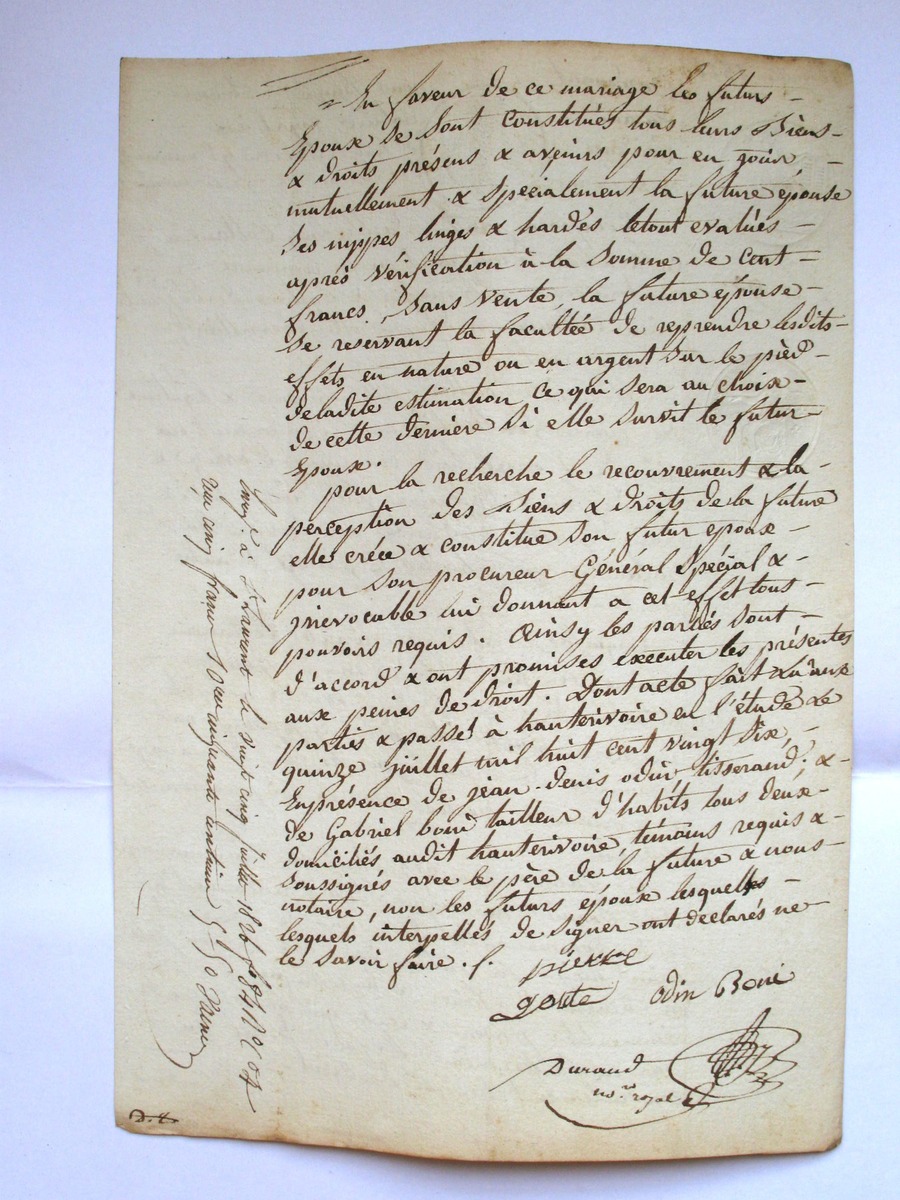 En faveur de ce mariage les futurs
Epoux se sont constitués tous leurs Biens
& droits présens & avenirs pour en jouir
mutuellement & spécialement la future épouse
Ses nippes linges & hardes letout evalués
après vérification à la Somme de cent
francs, Sans Vente, la future épouse
se reservant la facultée de reprendre lesdits
effets en nature ou en argent sur le pied
deladite estimation, ce qui sera au choix
de cette dernière si elle survit le futur
Epoux.
pour la recherche le recouvrement & la
perception des Biens & droits de la future
elle créée & constitue son futur epoux
pour son procureur Général Spécial &
jrrevocable lui donnant a cet effet tous
pouvoirs requis. Ainsy les parties sont
d'accord & ont promises executer les présentes
aux peines de droit. Dont acte fait Lu aux
parties & passé à hauterivoire en l'étude Le
quinze juillet mil huit cent vingt six,
Enprésence de jean-denis odin tisserand, &
de Gabriel boni tailleur d'habits tous deux
domiciliés audit hauterivoire, témoins requis &
soussignés avec le père de la future & nous
notaire, non les futurs époux lesquelles
lesquels interpellés de signer ont déclarés ne
le savoir faire. /.
pierre
goute odin Boni
Durand
no.re royal
à St Laurent le vingt cinq juillet 1826
reçu cinq francs cinquante centimes
D. &.